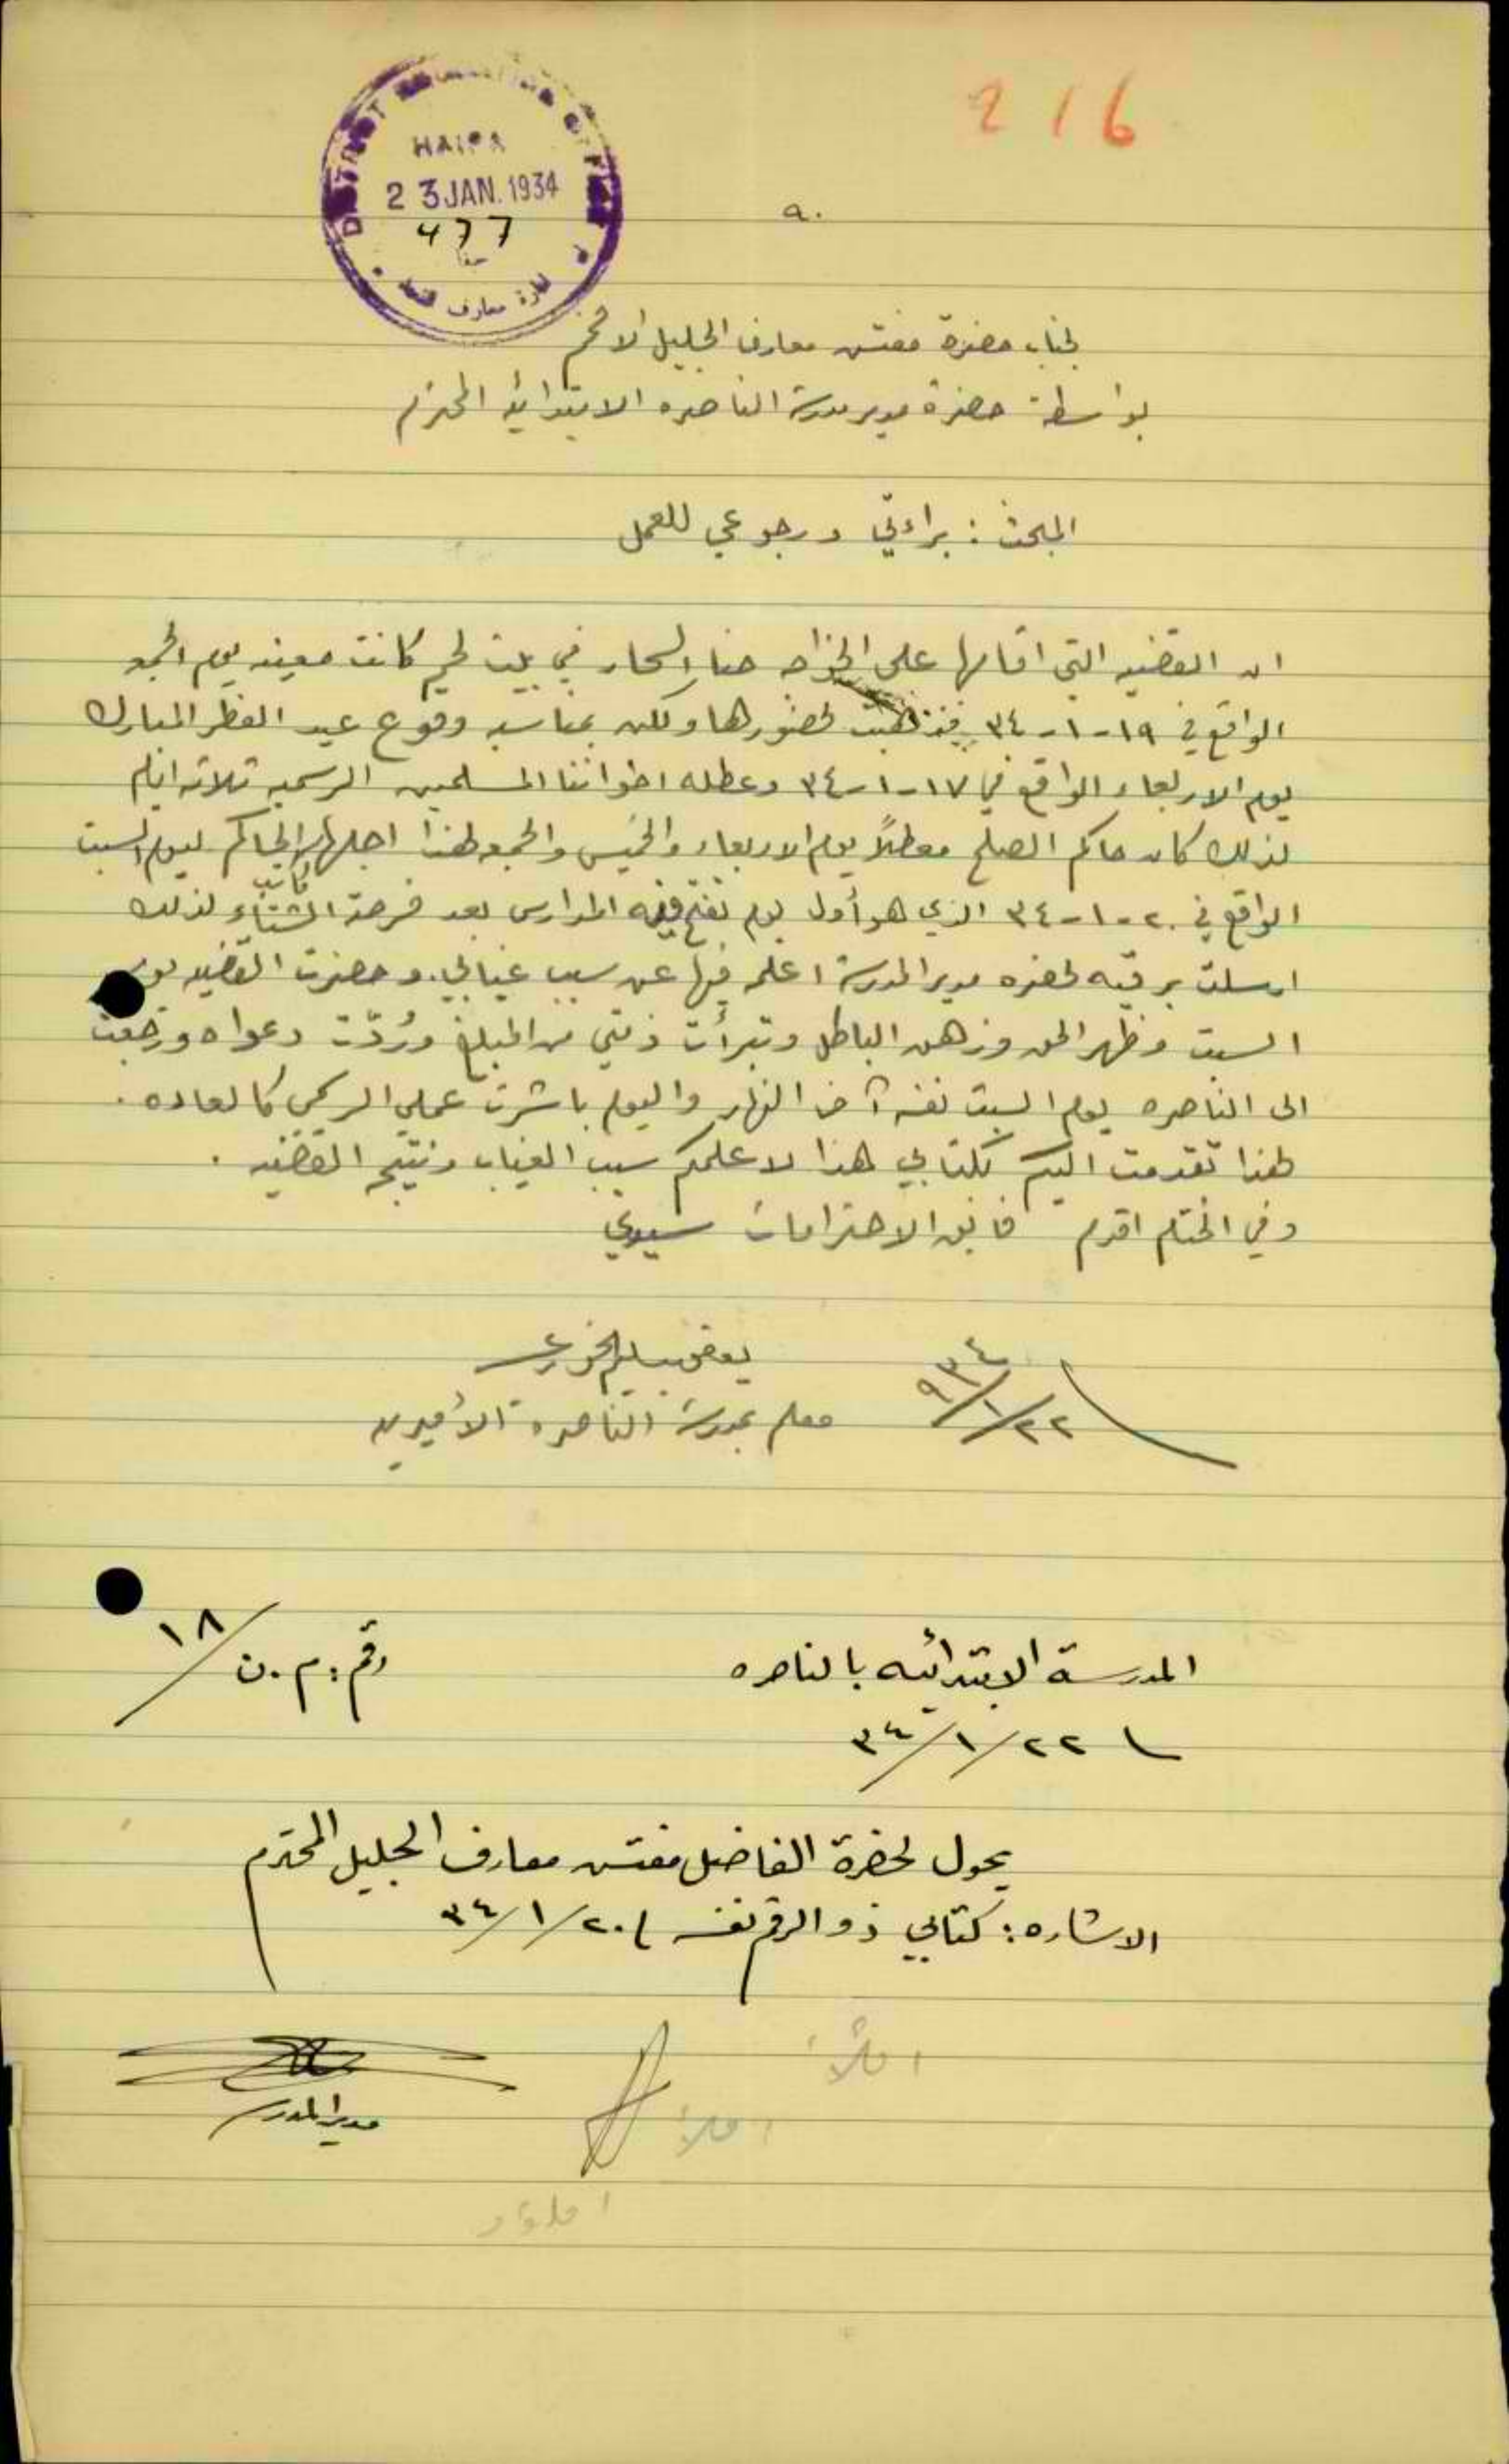 216
DISTRICT EDUCATION OFFICE
HAIFA
23 JAN. 1934
477
حيفا
ادارة معارف قضاء
٩٠
لجناب حضرة مفتش معارف الجليل الافخم
بواسطة حضرة مدير مدرسة الناصره الابتدائية المحترم
المبحث : براءتي ورجوعي للعمل
ان القضيه التي اقامها علي الخواجه حنا السحار في بيت لحم كانت معينه يوم الجمعه
الواقع في ١٩-١-٣٤ فذهبت لحضورها ولكن بمناسبه وقوع عيد الفطر المبارك
يوم الاربعاء الواقع في ١٧-١-٣٤ وعطله اخواننا المسلمين الرسميه ثلاثه ايام
لذلك كان حاكم الصلح معطلاً يوم الاربعاء والخميس والجمعه لهذا اجلها الحاكم ليوم السبت
الواقع في ٢٠-١-٣٤ الذي هو أول يوم تفتح فيه المدارس بعد فرصة الشتاء لذلك
ارسلت برقيه لحضره مدير المدرسة اعلمه فيها عن سبب غيابي. وحضرت القضيه يوم
السبت وظهر الحق وزهق الباطل وتبرأت ذمتي من المبلغ ورُدّت دعواه ورجعت
الى الناصره يوم السبت نفسه آخر النهار واليوم باشرت عملي الرسمي كالعاده .
لهذا تقدمت اليكم بكتابي هذا لاعلمكم سبب الغياب ونتيجة القضيه .
وفي الختام اقدم فائق الاحترامات سيدي
يعقوب سليم الخوري
٢٢/١/٩٣٤
معلم بمدرسة الناصرة الأميرية
رقم : م.ن/١٨
المدرسة الابتدائيه بالناصره
٢٢/١/٣٤
يحول لحضرة الفاضل مفتش معارف الجليل المحترم
الاشاره : كتابي ذو الرقم نفسه ٢٠/١/٣٤
مدير المدرسة